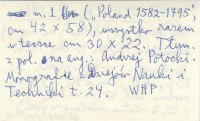 m. 1 („Poland 1582-1795",
cm 42 × 58), wszystko razem
w teczce cm 30 × 22. Tłum.
z pol. na ang.: Andrzej Potocki.
Monografie z Dziejów Nauki i
Techniki t. 24. WHP